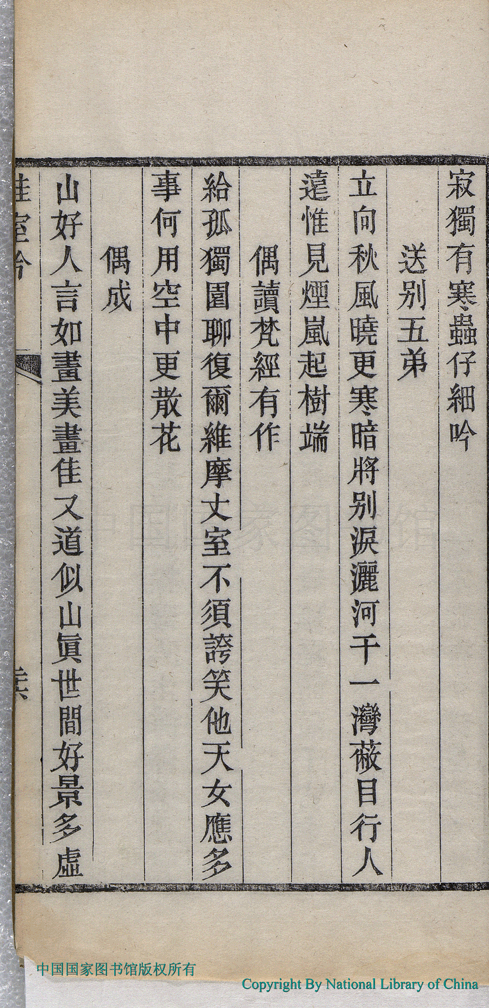 寂獨有寒蟲仔細吟
送别五弟
立向秋風曉更寒暗將别淚灑河干一灣蔽目行人
遠惟見煙嵐起樹端
偶讀梵經有作
給孤獨園聊復爾維摩丈室不須誇笑他天女應多
事何用空中更散花
偶成
山好人言如畫美畫佳又道似山眞世間好景多虛
室吟
中国国家图书馆
中国国家图书馆版权所有
Copyright By National Library of China